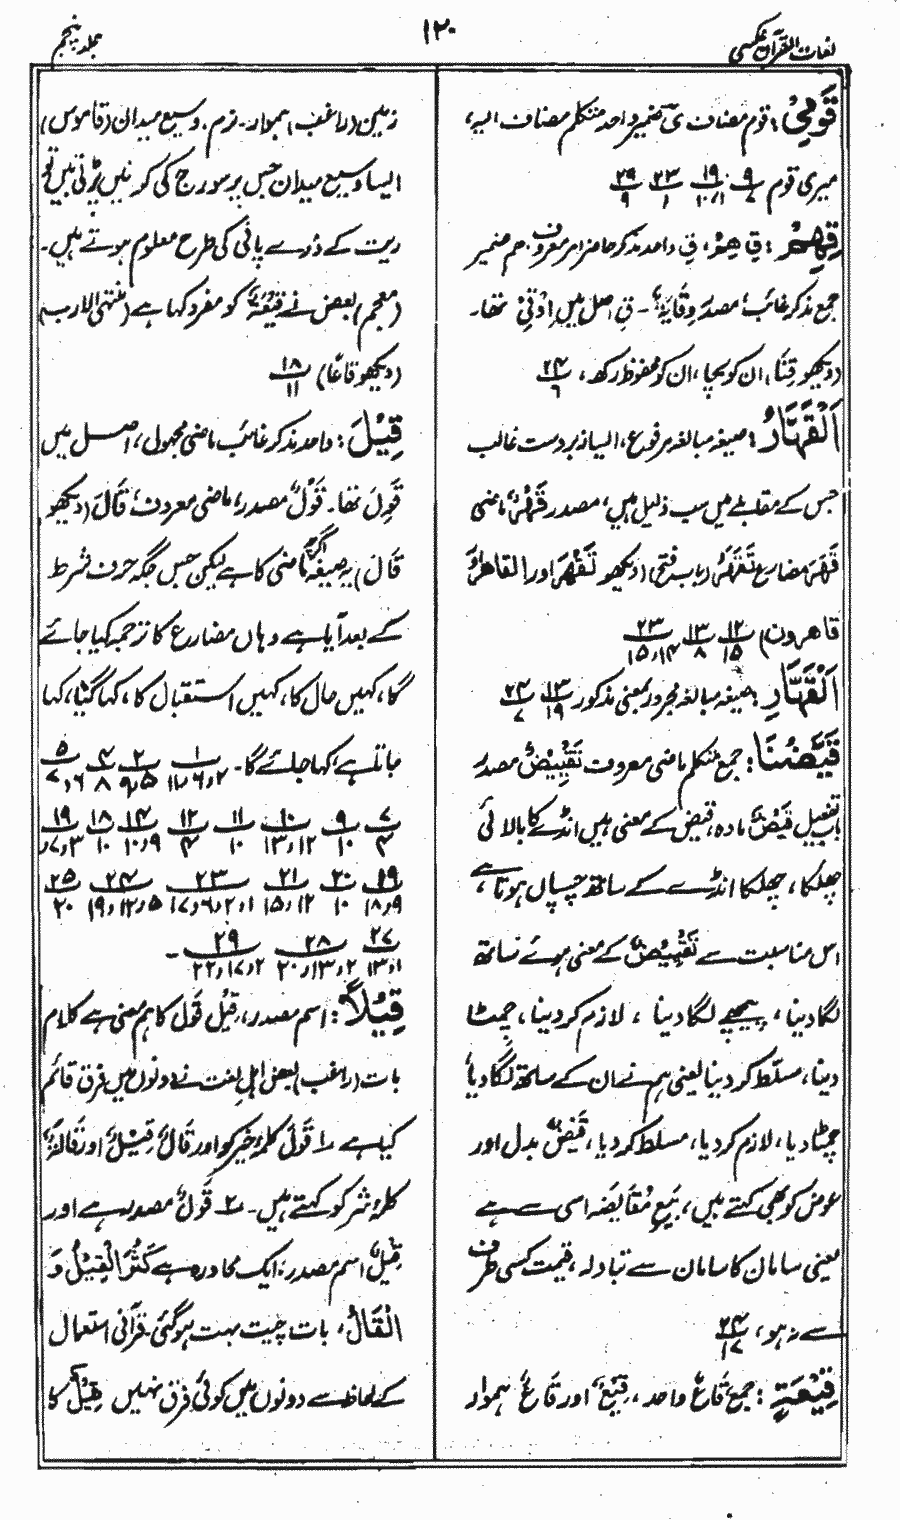 لغات القرآن عکسی
۱۲۰
جلد پنجم
قَوْمِیْ: قوم مضاف ی ضمیر واحد متکلم مضاف الیہ،
میری قوم ۹/۷ ۱۹/۱۰،۱ ۲۳/۱ ۲۹/۹
قِهِمْ: قِ هِمْ، قِ واحد مذکر حاضر امر معروف، هم ضمیر
جمع مذکر غائب، مصدر وِقَایَۃٌ۔ قِ اصل میں اِوْقِیْ تھا۔
(دیکھو قِنَا) ان کو بچا، ان کو محفوظ رکھ، ۲۴/۶
اَلْقَهَّارُ: صیغہ مبالغہ مرفوع، ایسا زبردست غالب
جس کے مقابلے میں سب ذلیل ہیں، مصدر قَهْرٌ، ماضی
قَهَرَ مضارع تَقْهَرُ (باب فتح) (دیکھو تَقْهَر اور القاهرُ
قاهرون) ۱۲/۱۵ ۱۳/۸ ۲۳/۱۵،۱۴
اَلْقَهَّارِ: صیغہ مبالغہ مجرور بمعنی مذکور ۱۳/۱۹ ۲۴/۷
قَیَّضْنَا: جمع متکلم ماضی معروف تَقْیِیْضٌ مصدر
باب تفعیل قَیْضٌ مادہ، قیض کے معنی ہیں انڈے کا بالائی
چھلکا، چھلکا انڈے کے ساتھ چسپاں ہوتا ہے،
اس مناسبت سے تَقْیِیْضٌ کے معنی ہوئے ساتھ
لگا دینا، پیچھے لگا دینا، لازم کر دینا، چمٹا
دینا، مسلّط کر دینا یعنی ہم نے ان کے ساتھ لگا دیا
چمٹا دیا، لازم کر دیا، مسلط کر دیا، قَیْضٌ بدل اور
عوض کو بھی کہتے ہیں، بَیْعِ مُقَایَضَہ اسی سے ہے
یعنی سامان کا سامان سے تبادلہ، قیمت کسی طرف
سے نہ ہو، ۲۴/۱۷
قِیْعَۃٍ: جمع قَاعٌ واحد، قِیْعٌ، اور قَاعٌ ہموار
زمین (راغب) ہموار۔ نرم۔ وسیع میدان (قاموس)
ایسا وسیع میدان جس پر سورج کی کرنیں پڑتی ہیں تو
ریت کے ذرّے پانی کی طرح معلوم ہوتے ہیں۔
(معجم) بعض نے قِیْعَۃٌ کو مفرد کہا ہے (منتہی الارب)
(دیکھو قاعًا) ۱۸/۱۱
قِیْلَ: واحد مذکر غائب ماضی مجہول، اصل میں
قُوِلَ تھا۔ قَوْلٌ مصدر، ماضی معروف، قَالَ (دیکھو
قَالَ) یہ صیغہ اگرچہ ماضی کا ہے لیکن جس جگہ حرف شرط
کے بعد آیا ہے وہاں مضارع کا ترجمہ کیا جائے
گا، کہیں حال کا، کہیں استقبال کا، کہا گیا، کہا
جاتا ہے، کہا جائے گا۔ ۱/۲،۶،۱۷ ۲/۵،۹ ۴/۸ ۵/۶،۷
۷/۴ ۹/۱۰ ۱۰/۱۲،۱۳ ۱۱/۱۰ ۱۲/۴ ۱۴/۹،۱۰ ۱۸/۱۰ ۱۹/۳،۷،۹
۱۹/۹،۱۸ ۲۰/۱۰ ۲۱/۱۲،۱۵ ۲۳/۱،۲،۶،۱۷ ۲۴/۵،۱۲،۱۹ ۲۵/۲۰
۲۷/۱،۱۳ ۲۸/۲،۱۳،۲۰ ۲۹/۲،۱۷،۲۲۔
قِیْلًا: اسم مصدر، قِیْل قَوْل کا ہم معنی ہے کلام
بات (راغب) بعض اہلِ لغت نے دونوں میں فرق قائم
کیا ہے ۱۔ قَوْلٌ کلمۂ خیر کو اور قَالٌ، قِیْلٌ اور قَالَۃٌ
کلمۂ شر کو کہتے ہیں۔ ۲۔ قَوْلٌ مصدر ہے اور
قِیْلٌ اسم مصدر، ایک محاورہ ہے کَثُرَ الْقِیْلُ وَ
الْقَالُ، بات چیت بہت ہو گئی۔ قرآنی استعمال
کے لحاظ سے دونوں میں کوئی فرق نہیں قِیْلٌ کا